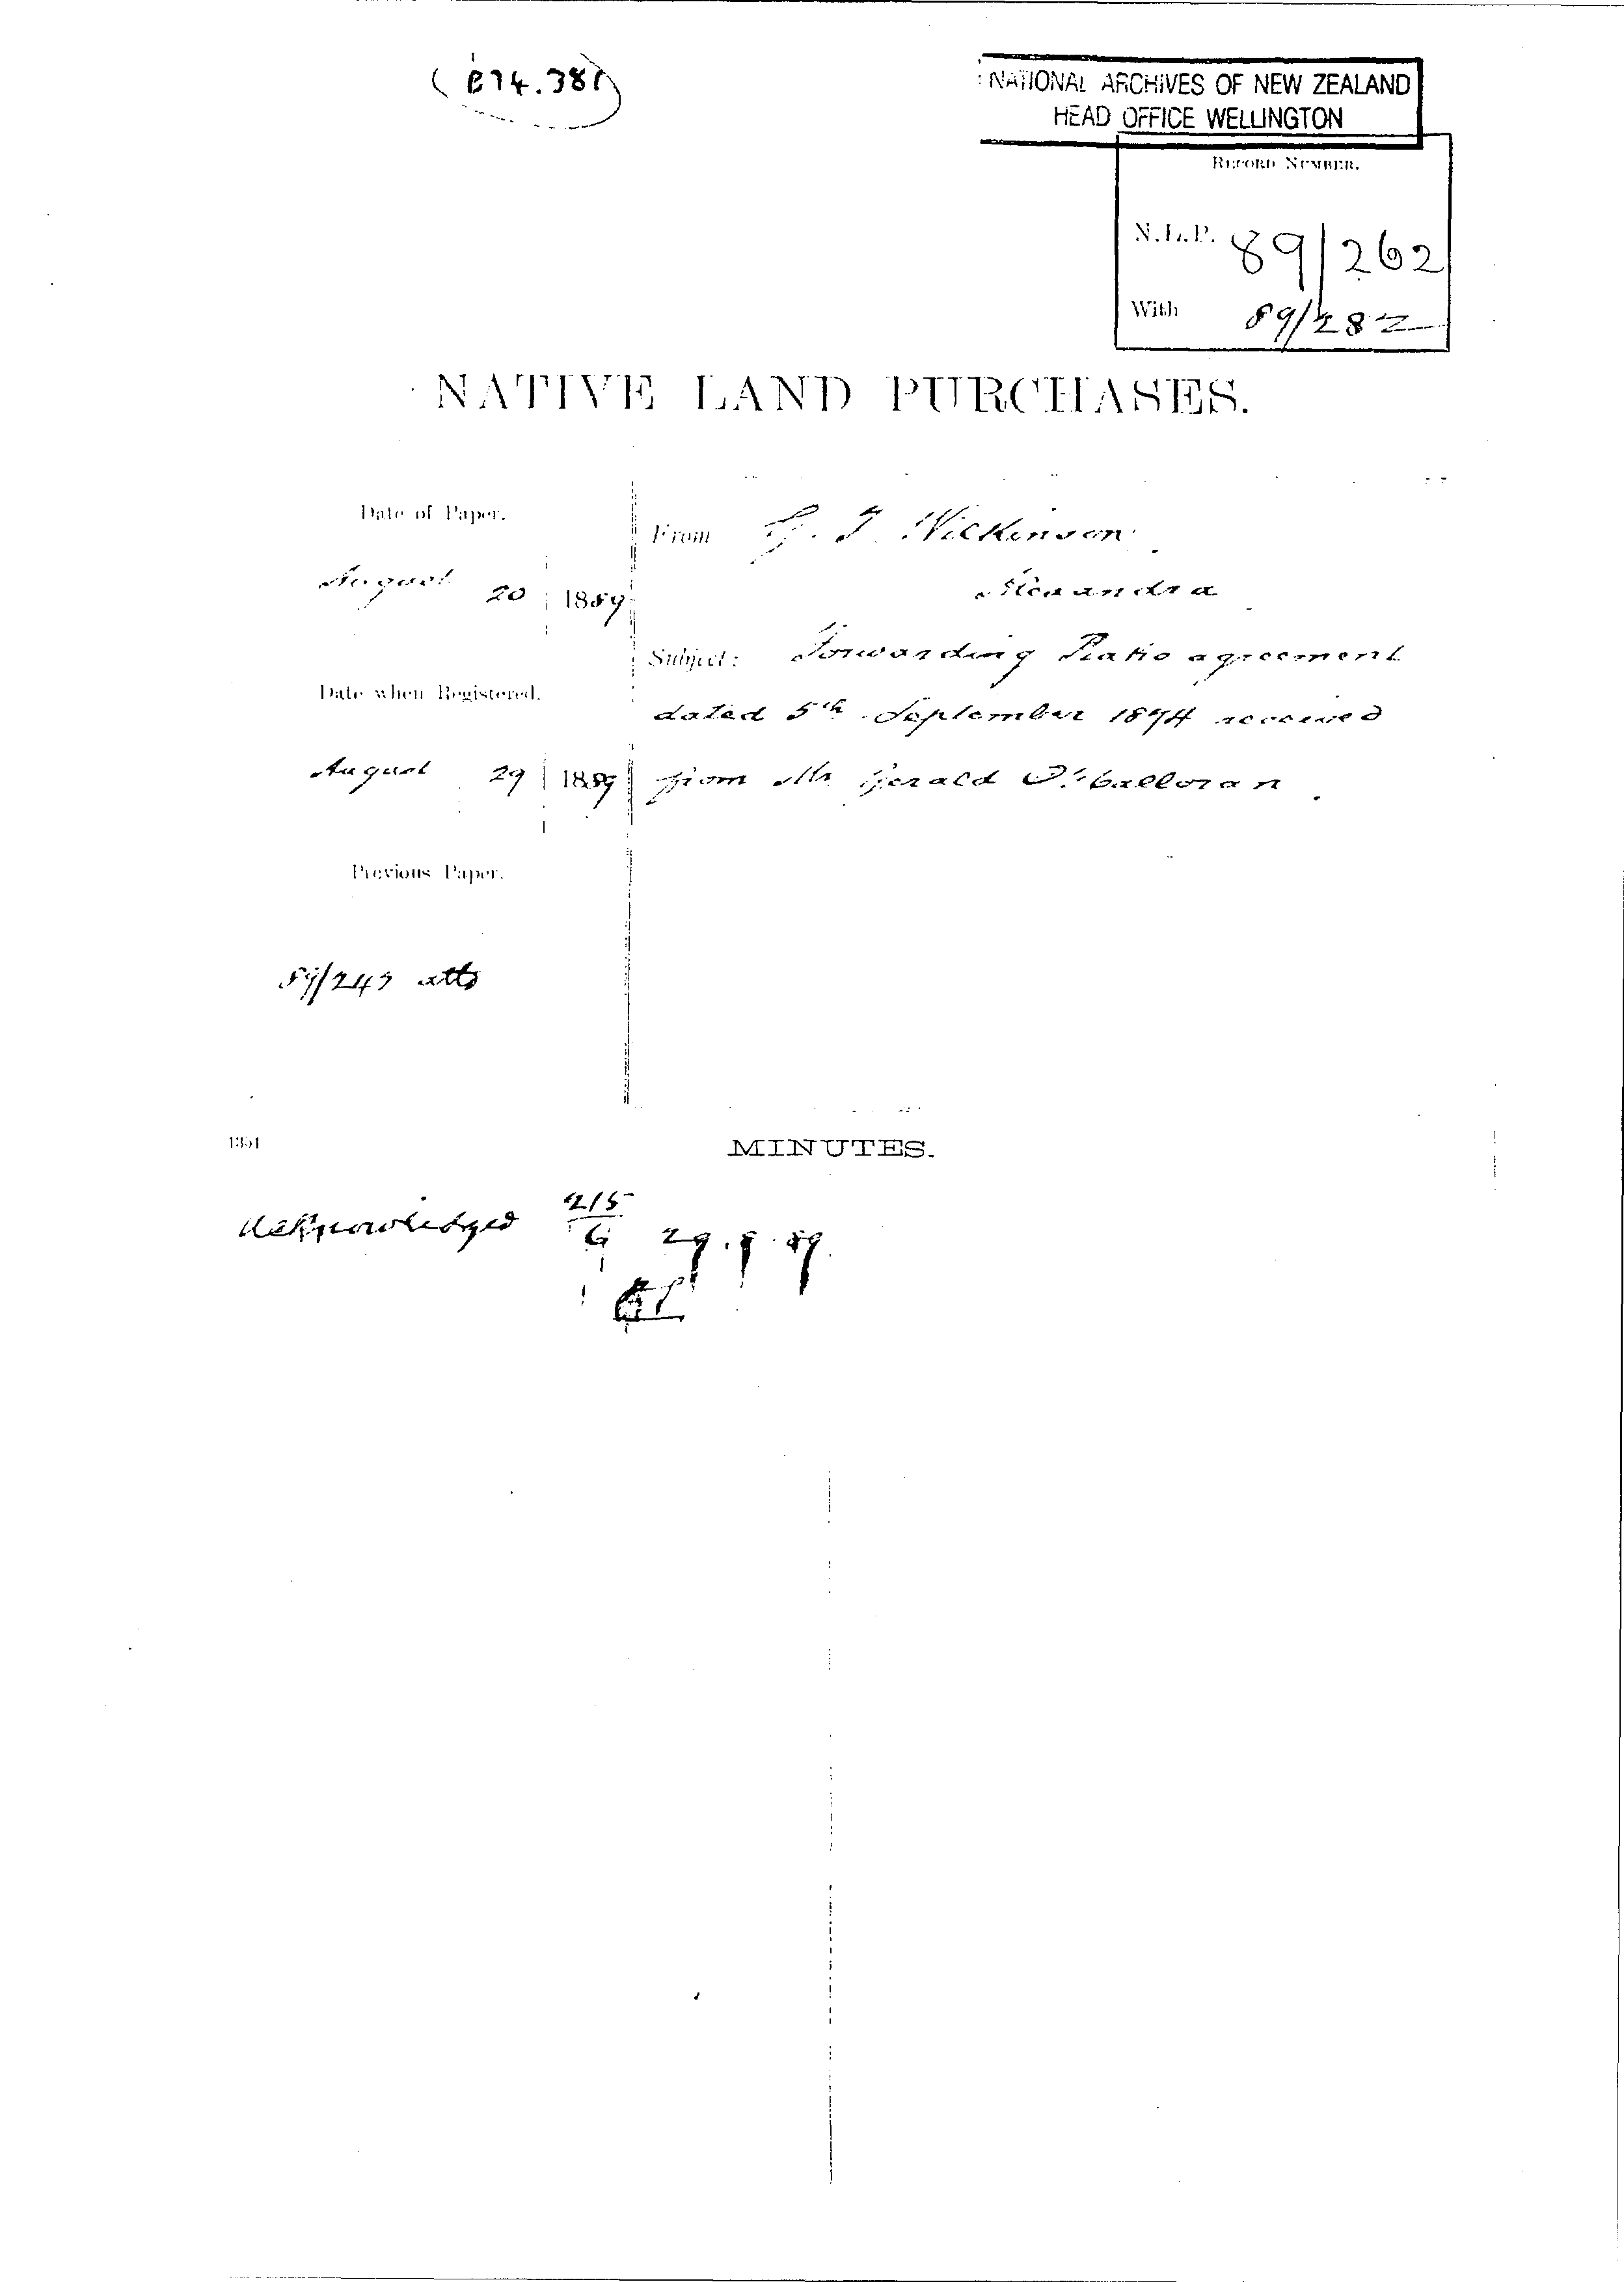 (B74.381)
NATIONAL ARCHIVES OF NEW ZEALAND
HEAD OFFICE WELLINGTON
RECORD NUMBER.
N.L.P. 89/262
With 89/282
NATIVE LAND PURCHASES.
Date of Paper.
From G. T Wilkinson
August 20 1889
Alexandra
Subject: Forwarding agreement
Date when Registered.
dated 5th September 1874 received
August 29 1889
from Mr Gerald O'Halloran
Previous Paper.
89/243 atts
1351
MINUTES.
Acknowledged 215
G 29.8.89.